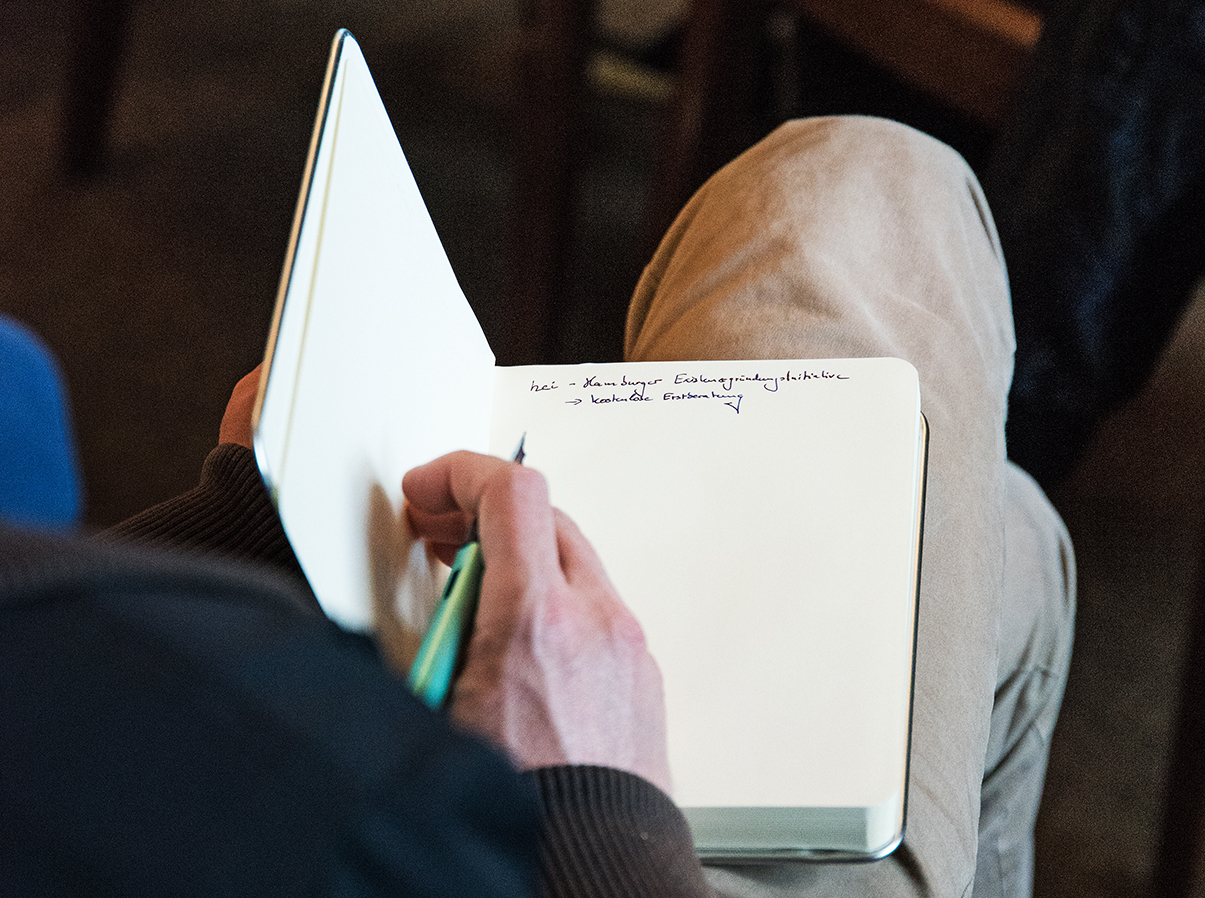 hei - Hamburger ExistenzgründungsInitiative
→ kostenlose Erstberatung